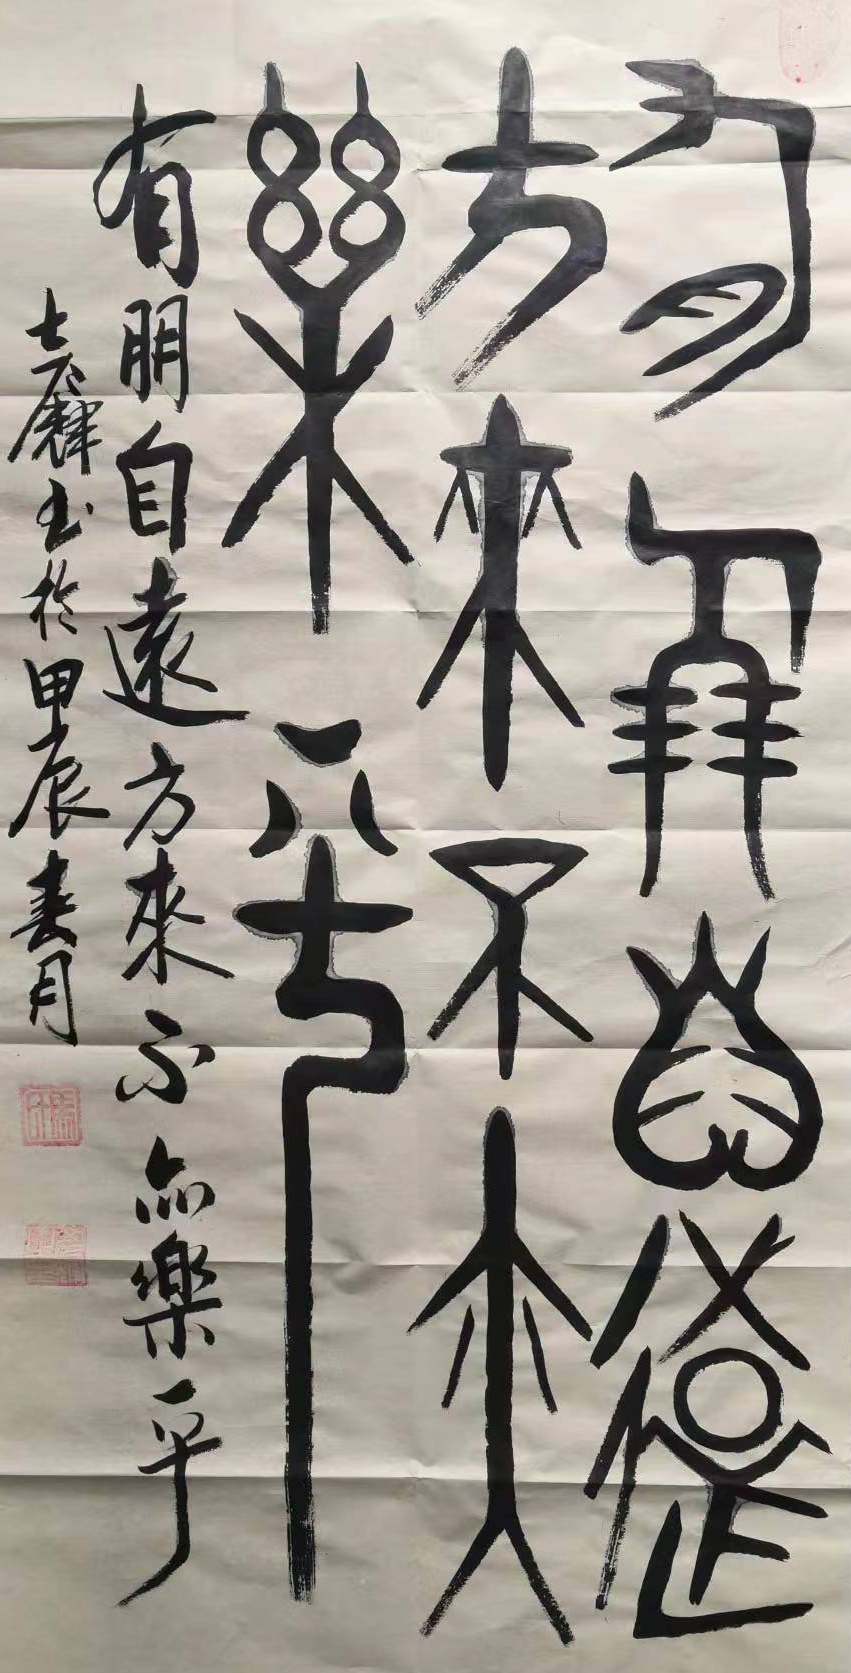 有朋自遠
方來不亦
樂乎
有朋自遠方來不亦樂乎
書於甲辰春月